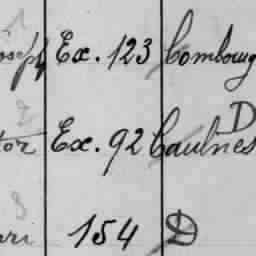 1
oseph Ex. 123 Combourg
2 D
tor Ex. 92 Caulnes
3
ri 154 D